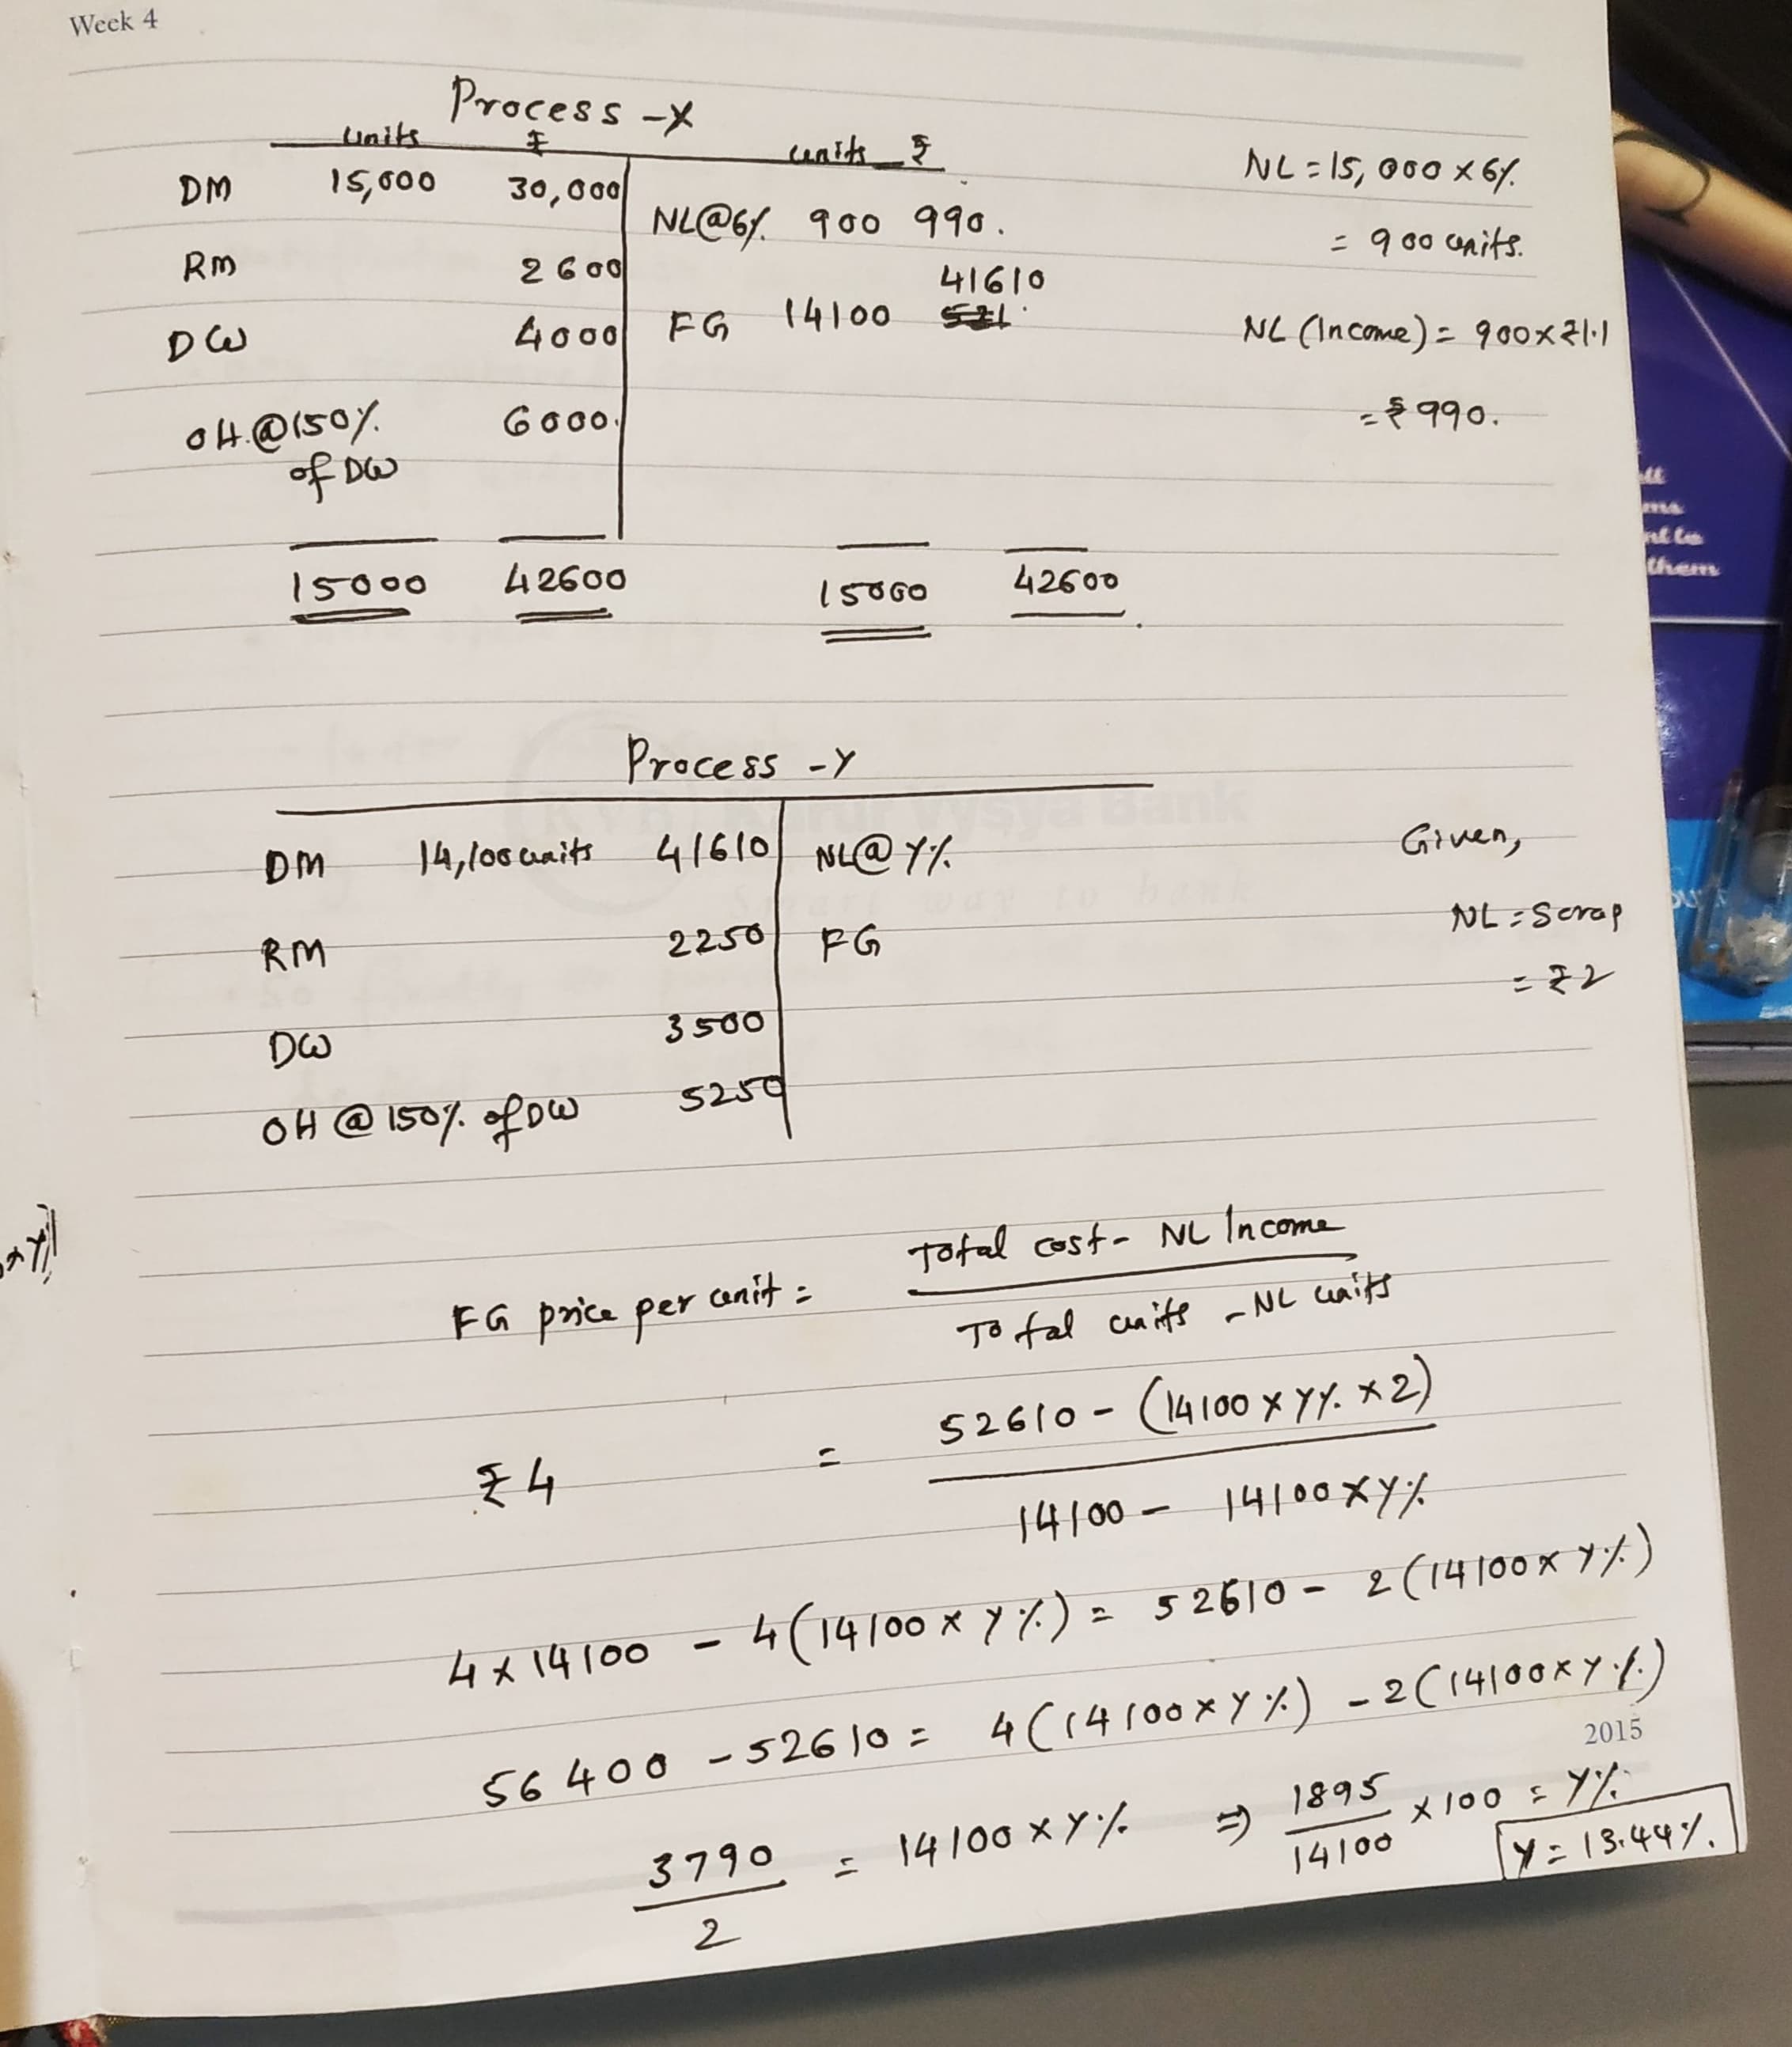 Week 4
Process -X
units ₹ units ₹
DM 15,000 30,000 NL@6% 900 990. NL = 15,000 x 6%
= 900 units.
RM 2600 41610
DW 4000 FG 14100 NL (Income) = 900x₹1.1
OH.@150% 6000. = ₹990.
of DW
15000 42600 15000 42600
Process -Y
DM 14,100 units 41610 NL@ Y% Given,
RM 2250 FG NL = Scrap
= ₹2
DW 3500
OH @ 150% of DW 5250
FG price per unit = Total cost - NL Income
Total units - NL units
₹4 = 52610 - (14100 x Y% x 2)
14100 - 14100 x Y%
4 x 14100 - 4(14100 x Y%) = 52610 - 2(14100 x Y%)
56400 - 52610 = 4(14100 x Y%) - 2(14100 x Y%)
2015
3790 = 14100 x Y% ⇒ 1895 x 100 = Y%
2 14100 Y = 13.44%.
KVB Karur Vysya Bank
Smart way to bank
them